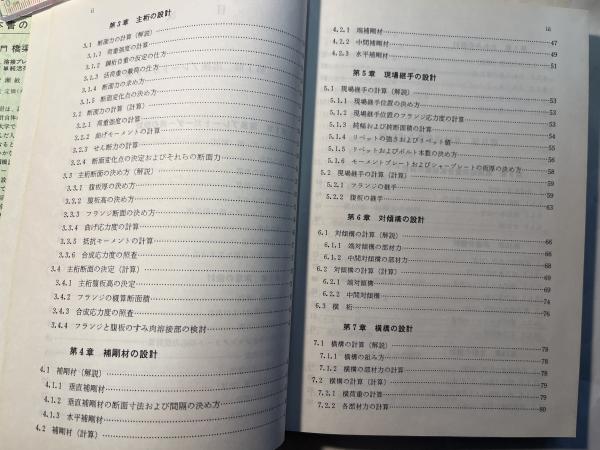 ii
第3章 主桁の設計
3.1 断面力の計算（解説）
3.1.1 荷重強度の計算
3.1.2 鋼桁自重の仮定の仕方
3.1.3 活荷重の載荷の仕方
3.1.4 断面力の求め方
3.1.5 断面変化点の決め方
3.2 断面力の計算（計算）
3.2.1 荷重強度の計算
3.2.2 曲げモーメントの計算
3.2.3 せん断力の計算
3.2.4 断面変化点の決定およびそれらの断面力
3.3 主桁断面の決め方（解説）
3.3.1 腹板厚の決め方
3.3.2 腹板高の決め方
3.3.3 フランジ断面の決め方
3.3.4 曲げ応力度の計算
3.3.5 抵抗モーメントの計算
3.3.6 合成応力度の照査
3.4 主桁断面の決定（計算）
3.4.1 主桁腹板高の決定
3.4.2 フランジの概算断面積
3.4.3 合成応力度の照査
3.4.4 フランジと腹板のすみ肉溶接部の検討
第4章 補剛材の設計
4.1 補剛材（解説）
4.1.1 垂直補剛材
4.1.2 垂直補剛材の断面寸法および間隔の決め方
4.1.3 水平補剛材
4.2 補剛材（計算）
iii
4.2.1 端補剛材 47
4.2.2 中間補剛材 49
4.2.3 水平補剛材 51
第5章 現場継手の設計
5.1 現場継手の計算（解説） 53
5.1.1 現場継手位置の決め方 53
5.1.2 現場継手位置のフランジ応力度の計算 53
5.1.3 純幅および純断面積の計算 54
5.1.4 リベットの強さおよびリベット値 55
5.1.5 リベットおよびボルト本数の決め方 56
5.1.6 モーメントプレートおよびシャープレートの板厚の決め方 58
5.2 現場継手の計算（計算） 59
5.2.1 フランジの継手 59
5.2.2 腹板の継手 63
第6章 対傾構の設計
6.1 対傾構の計算（解説） 66
6.1.1 端対傾構の部材力 66
6.1.2 中間対傾構の部材力 68
6.2 対傾構の計算（計算） 69
6.2.1 端対傾構 69
6.2.2 中間対傾構 74
6.3 横桁 76
第7章 横構の設計
7.1 横構の計算（解説） 78
7.1.1 横構の組み方 78
7.1.2 横構の部材力の計算 78
7.2 横構の計算（計算） 79
7.2.1 横荷重の計算 79
7.2.2 各部材力の計算 80